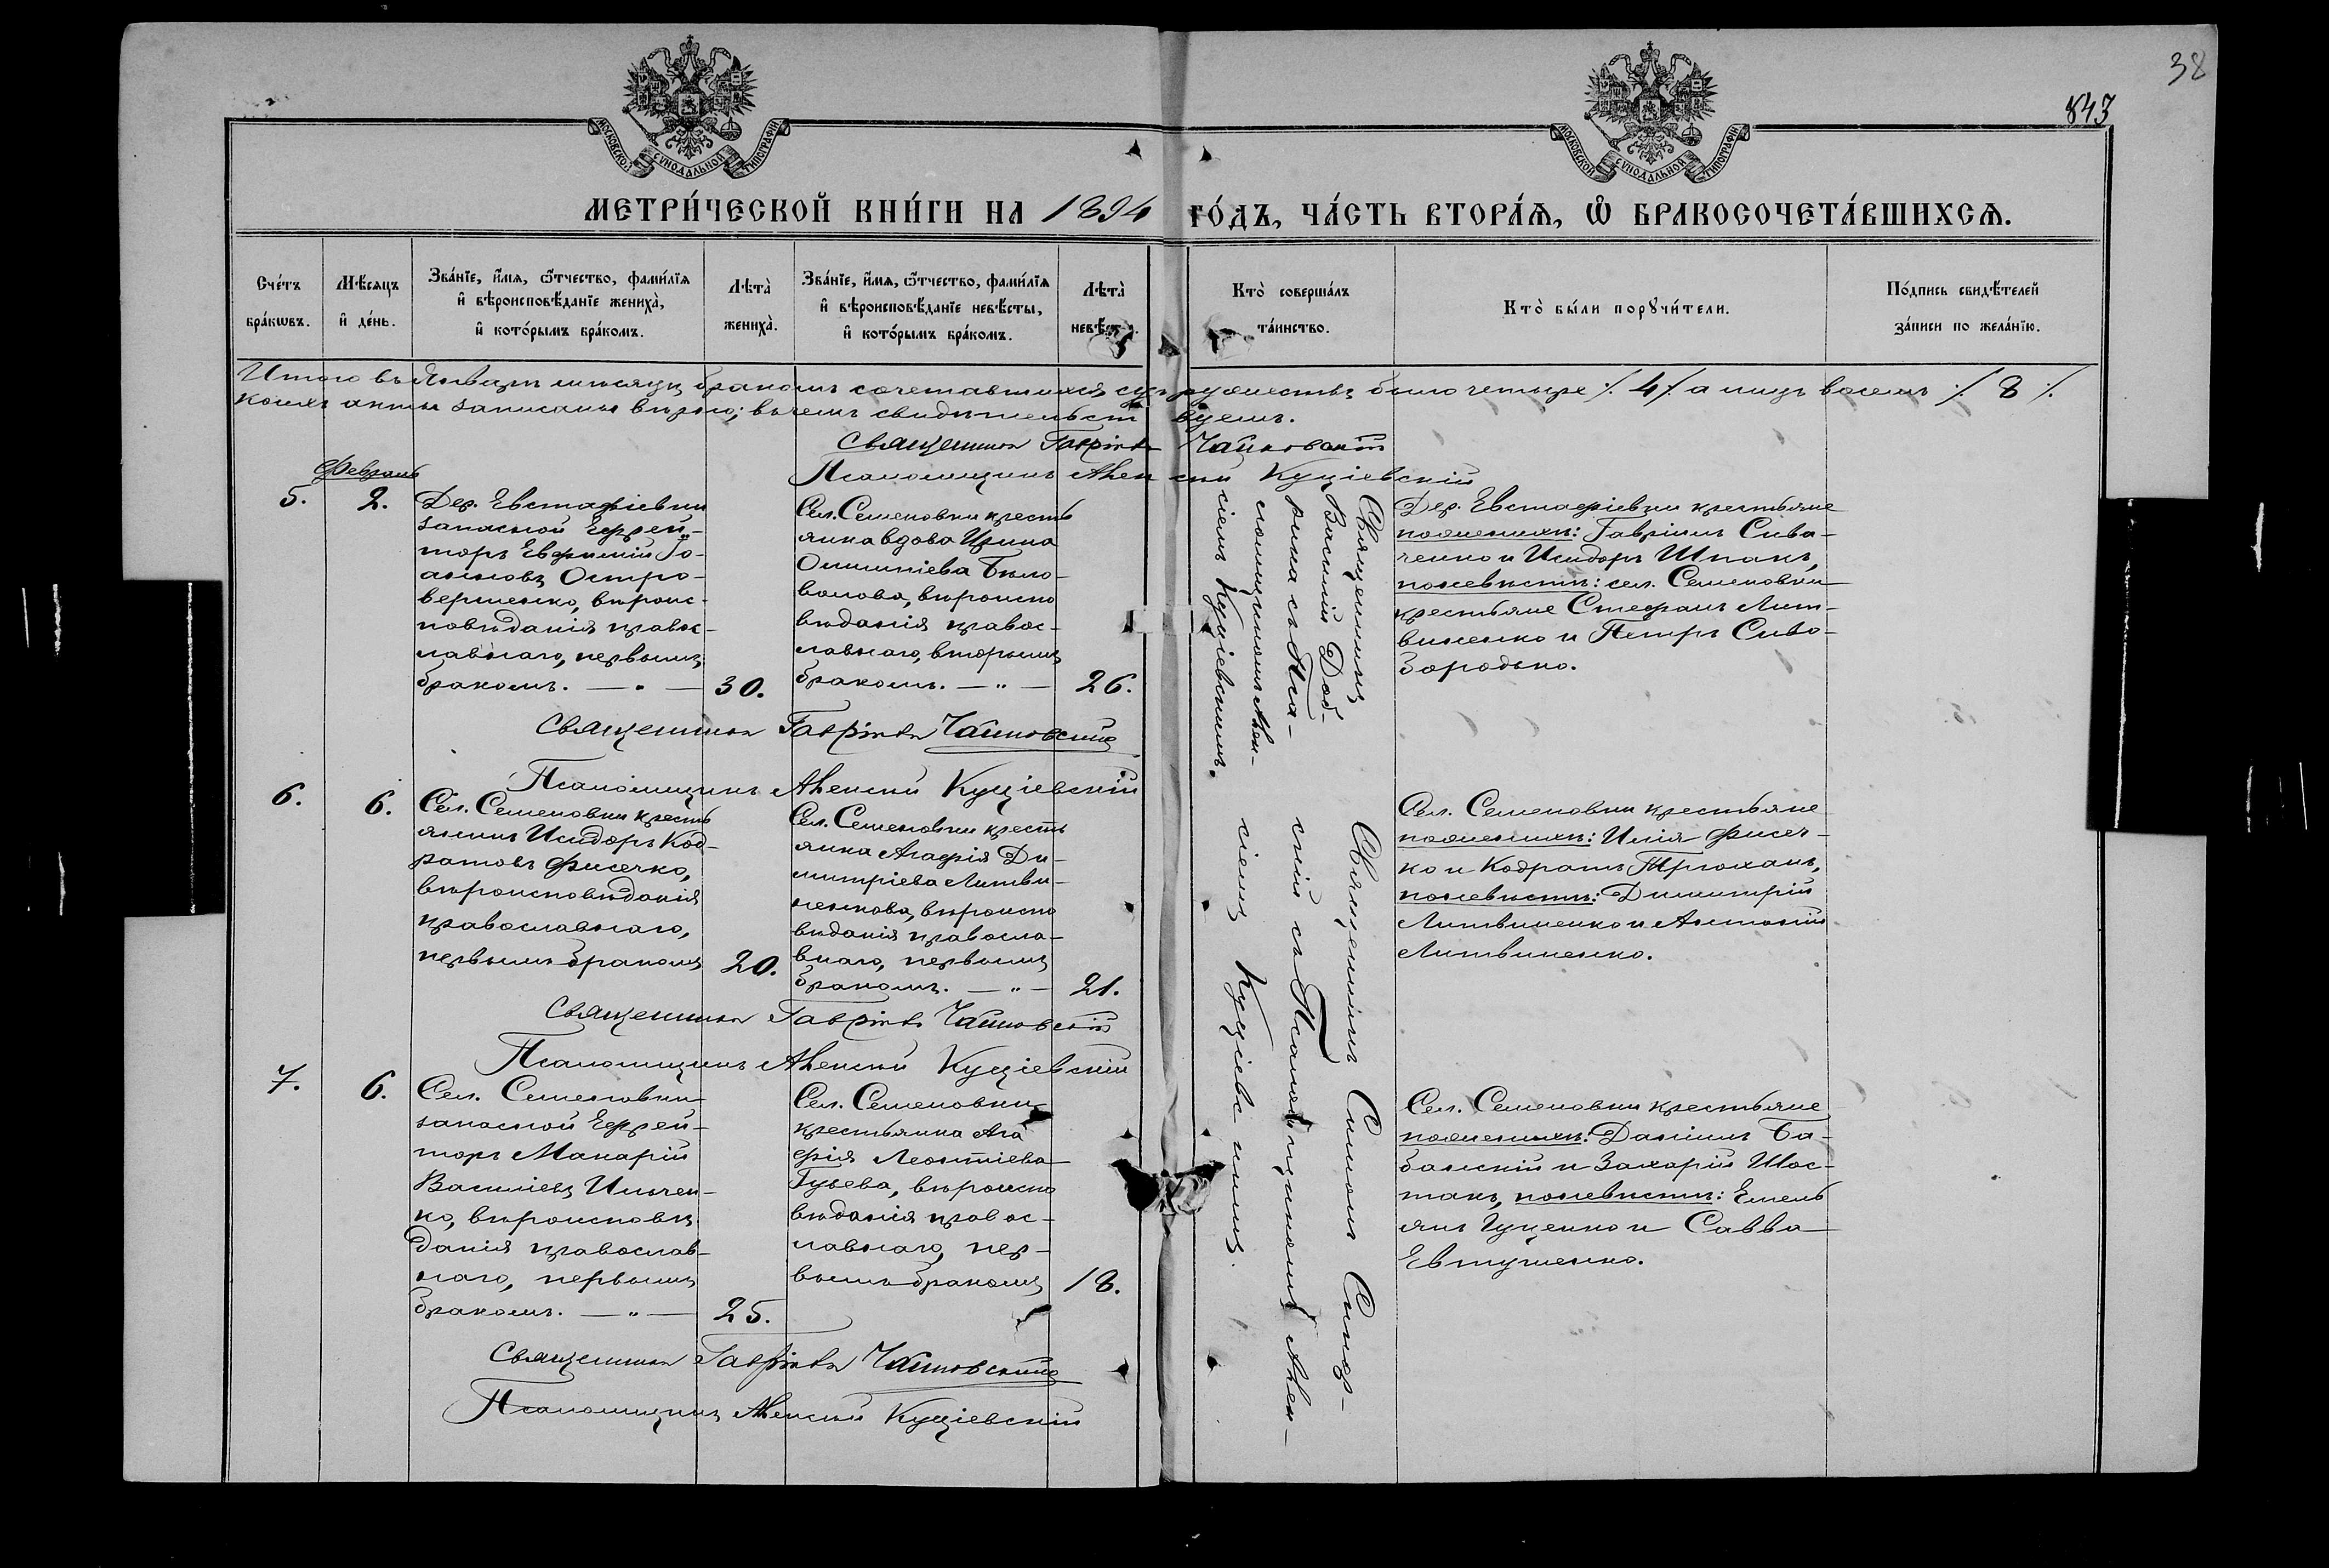 38
843
МОСКОВСКОЙ СѴНОДАЛЬНОЙ ТИПОГРАФІИ
МОСКОВСКОЙ СѴНОДАЛЬНОЙ ТИПОГРАФІИ
МЕТРИ́ЧЕСКОЙ КНИ́ГИ НА 1894 ГО́ДЪ, ЧА́СТЬ ВТОРА́Ѧ, Ѡ҆ БРАКОСОЧЕТА́ВШИХСѦ.
Сче́тъ
бра́кѡвъ.
Мѣ́сяцъ
и҆ де́нь.
Зва́нїе, и҆́мѧ, ѻ҆́тчество, фами́лїѧ
и҆ вѣроисповѣ́данїе жениха̀,
и҆ кото́рымъ бра́комъ.
Лѣта̀
жениха̀.
Зва́нїе, и҆́мѧ, ѻ҆́тчество, фами́лїѧ
и҆ вѣроисповѣ́данїе невѣ́сты,
и҆ кото́рымъ бра́комъ.
Лѣта̀
невѣ́сты.
Кто̀ соверша́лъ
та́инство.
Кто̀ бы́ли порꙋчи́тели.
По́дпись свидѣ́телей
за́писи по жела́нїю.
Итого въ Январѣ мѣсяцѣ бракомъ сочетавшихся супружествъ было четыре ⁒ 4 ⁒ а лицъ восемь ⁒ 8 ⁒
коихъ акты записаны вѣрно; въ чемъ свидѣтельствуемъ.
Священникъ Гавріилъ Чайковскій
Псаломщикъ Алексій Куціевскій
Февраль
5.
2.
Дер. Евстафіевки
запасной Ефрей-
торъ Евфимій Іо-
анновъ Остро-
вершенко, вѣроис-
повѣданія правос-
лавнаго, первымъ
бракомъ. — " —
30.
Сел. Семеновки кресть
янка вдова Ирина
Онипніева Бѣло-
волова, вѣроиспо
вѣданія правос-
лавнаго, вторымъ
бракомъ. — " —
26.
Священникъ
Василій Доб-
рина съ Пса-
ломщикомъ Алек-
сіемъ Куціевскимъ.
Дер. Евстафіевки крестьяне
по женихѣ: Гавріилъ Сива-
ченко и Исидоръ Шпакъ,
по невѣстѣ: сел. Семеновки
крестьяне Стефанъ Лит-
виненко и Петръ Сиво-
Зародько.
Священникъ Гавріилъ Чайковскій
Псаломщикъ Алексій Куціевскій
6.
6.
Сел. Семеновки кресть
янинъ Исидоръ Код-
ратовъ Фисечко,
вѣроисповѣданія
православнаго,
первымъ бракомъ
20.
Сел. Семеновки кресть
янка Агафія Ди-
митріева Литви-
ненкова, вѣроиспо
вѣданія правосла-
внаго, первымъ
бракомъ. — " —
21.
Сел. Семеновки крестьяне
по женихѣ: Илія Фисеч-
ко и Кодратъ Трюханъ,
по невѣстѣ: Димитрій
Литвиненко и Антоній
Литвиненко.
Священникъ Гавріилъ Чайковскій
Псаломщикъ Алексій Куціевскій
7.
6.
Сел. Семеновки
запасной Ефрей-
торъ Макарій
Василіевъ Ильчен-
ко, вѣроисповѣ
данія православ-
наго, первымъ
бракомъ. — " —
25.
Сел. Семеновки
крестьянка Ага
фія Леонтіева
Гуцева, вѣроиспо
вѣданія правос-
лавнаго, пер-
вымъ бракомъ
18.
Священникъ Симонъ Синер-
скій съ Псаломщикомъ Алек-
сіемъ Куціевскимъ.
Сел. Семеновки крестьяне
по женихѣ: Даніилъ Ба-
банскій и Захарій Шос-
такъ, по невѣстѣ: Емель
янъ Гуценко и Савва
Евтушенко.
Священникъ Гавріилъ Чайковскій
Псаломщикъ Алексій Куціевскій